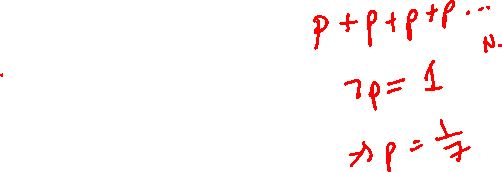 p + p + p + p ...
N.
7p = 1
→ p = 1/7